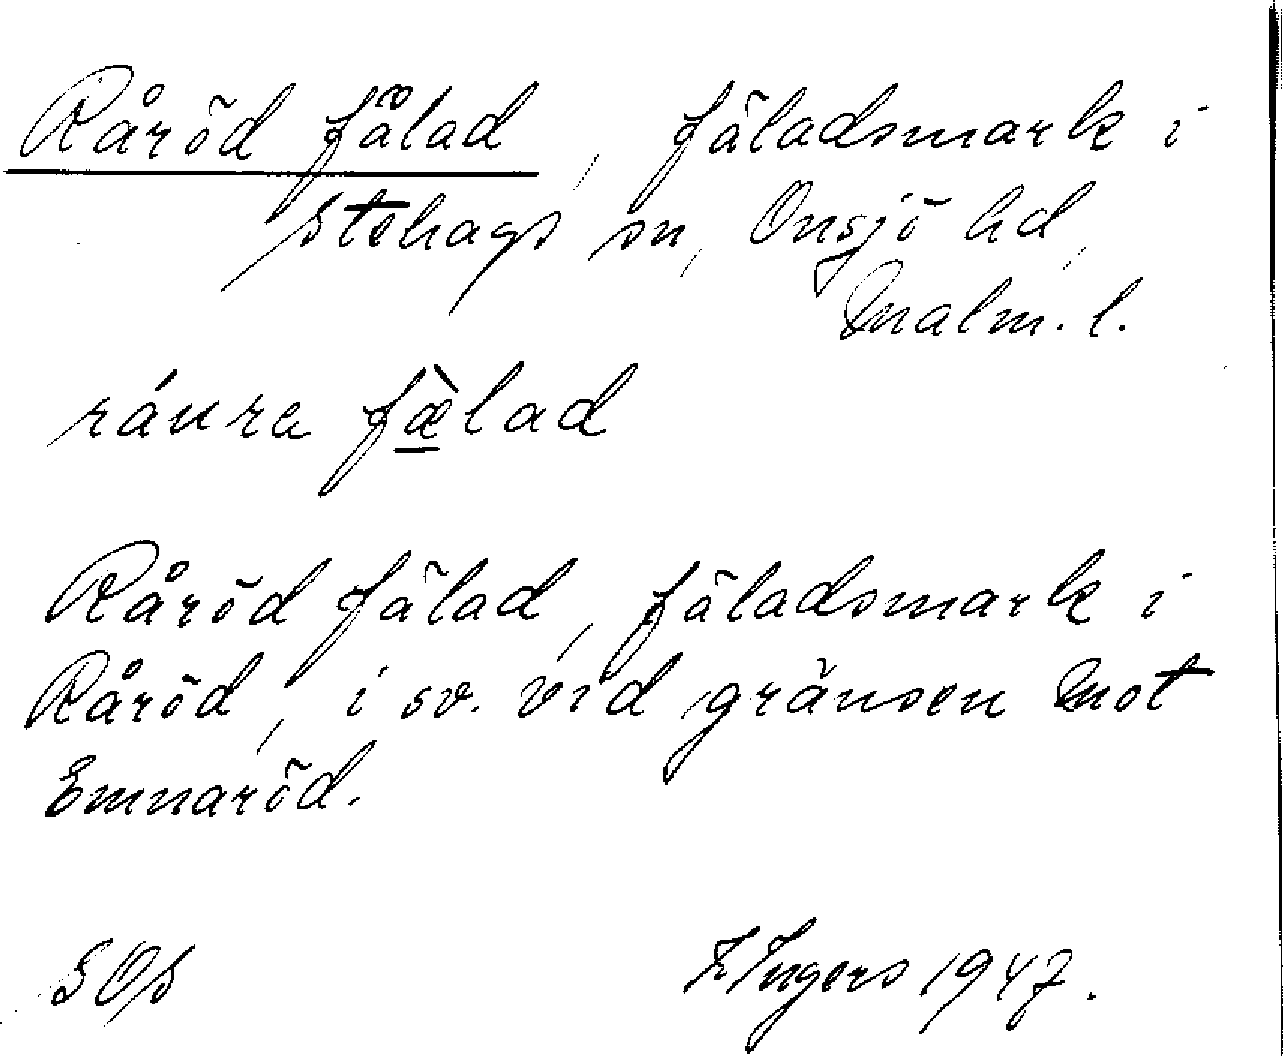 Råröd fålad, fäladsmark i
Stehags sn, Onsjö hd,
Malm. l.
ráura fæ̀lad
Råröd fälad, fäladsmark i
Råröd, i sv. vid gränsen mot
Emnaröd.
SOS
Ingers 1947.